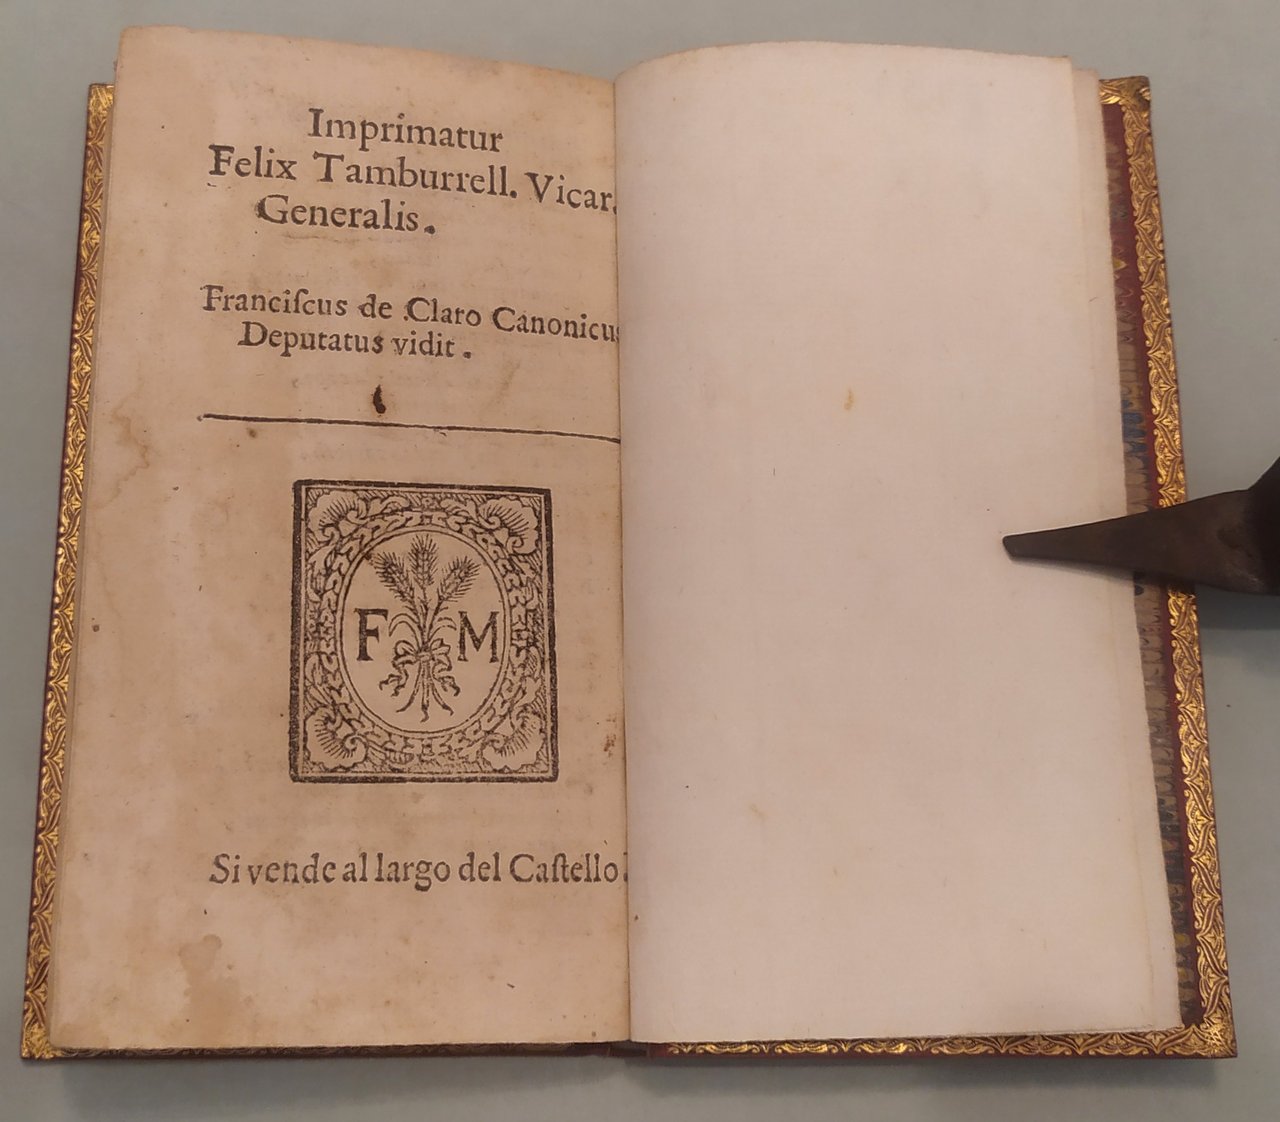 Imprimatur
Felix Tamburrell. Vicar.
Generalis.
Franciſcus de Claro Canonicus
Deputatus vidit.
F M
Si vende al largo del Caſtello.